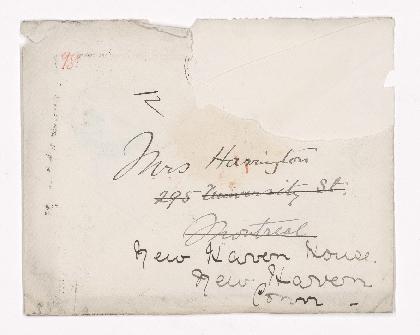 98
12
Mrs Harrington
295 University St.
Montreal
New Haven House.
New Haven
Conn -